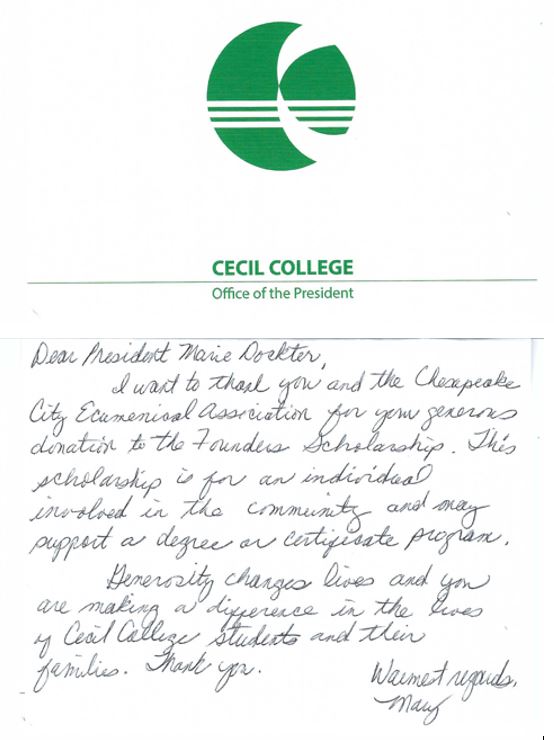 CECIL COLLEGE
Office of the President
Dear President Marie Dockter,
I want to thank you and the Chesapeake
City Ecumenical Association for your generous
donation to the Founders Scholarship. This
scholarship is for an individual
involved in the community and may
support a degree or certificate program.
Generosity changes lives and you
are making a difference in the lives
of Cecil College students and their
families. Thank you.
Warmest regards,
Mary